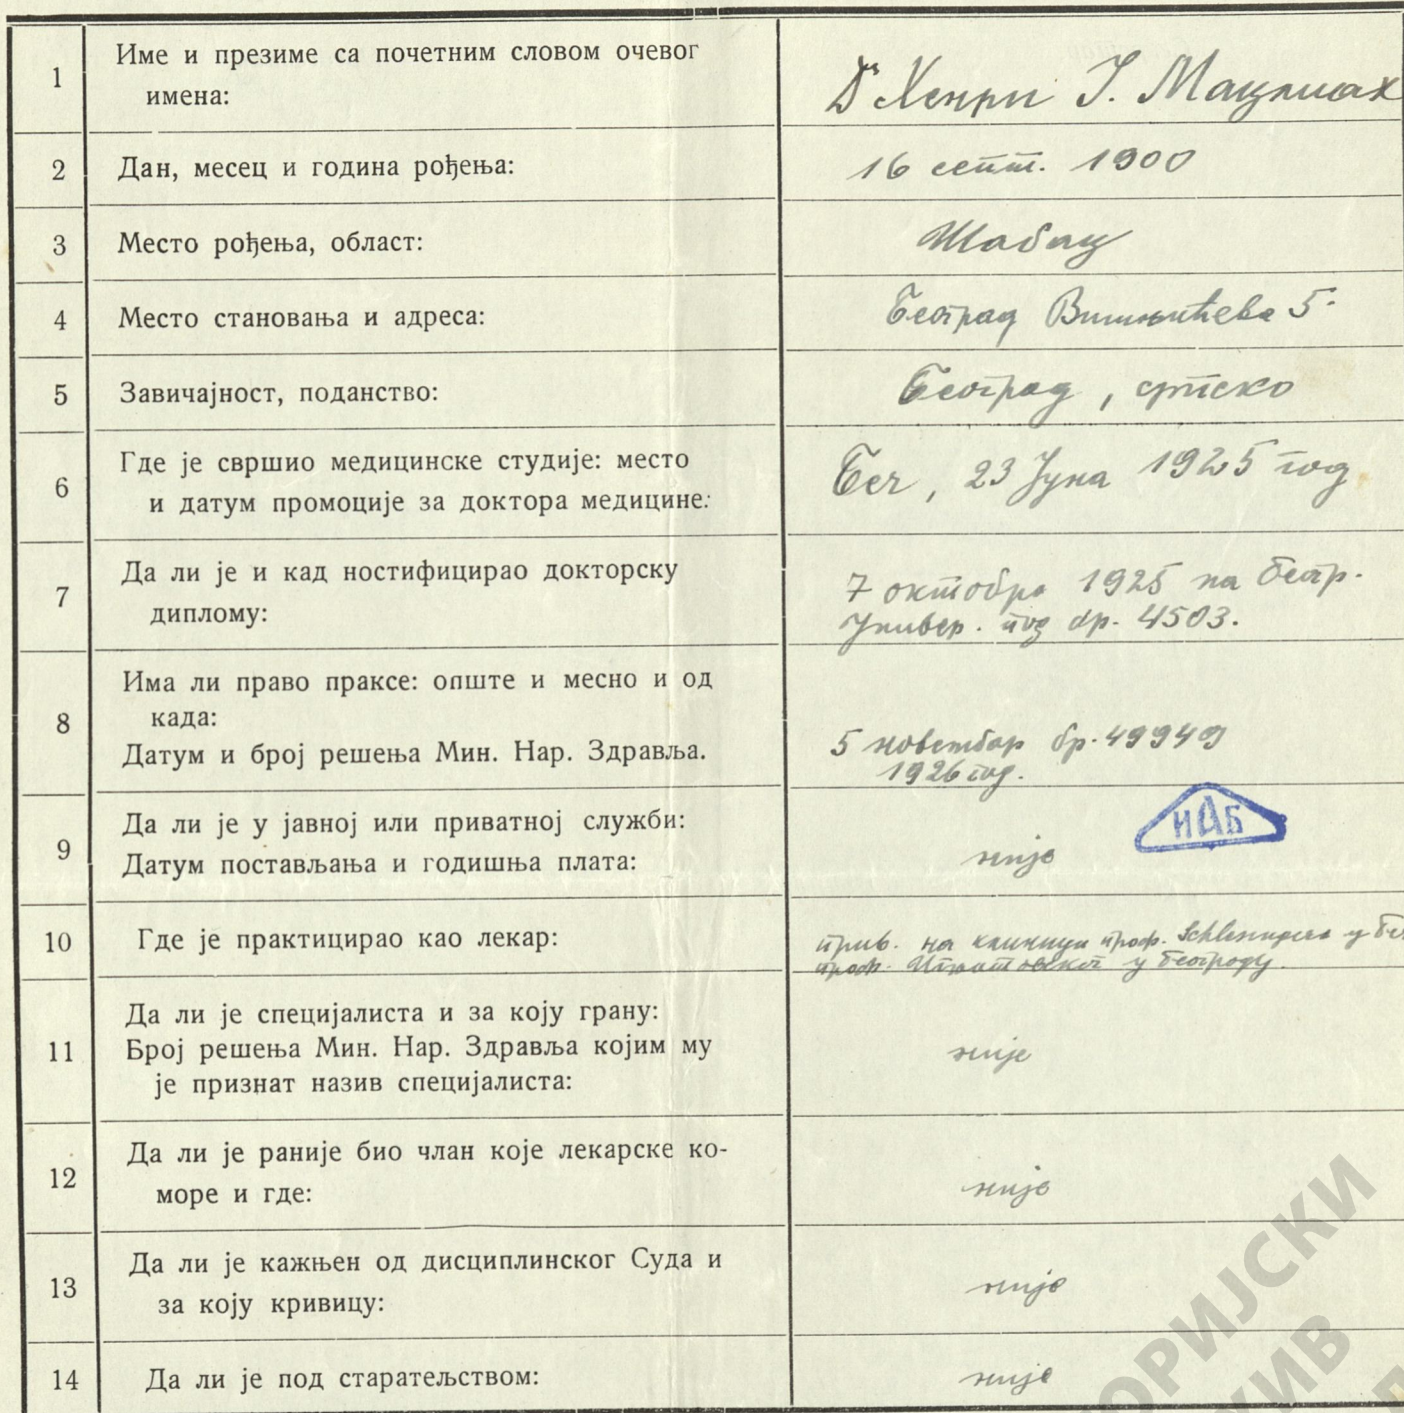 1
Име и презиме са почетним словом очевог
имена:
Dr Хенри Ј. Мацлиах
2
Дан, месец и година рођења:
16 септ. 1900
3
Место рођења, област:
Шабац
4
Место становања и адреса:
Београд Вишњићева 5.
5
Завичајност, поданство:
Београд, српско
6
Где је свршио медицинске студије: место
и датум промоције за доктора медицине:
Беч, 23 Јуна 1925 год
7
Да ли је и кад ностифицирао докторску
диплому:
7 октобра 1925 на Беогр.
Универ. под бр. 4503.
8
Има ли право праксе: опште и месно и од
када:
Датум и број решења Мин. Нар. Здравља.
5 новембар бр. 49949
1926 год.
9
Да ли је у јавној или приватној служби:
Датум постављања и годишња плата:
није
ИАБ
10
Где је практицирао као лекар:
прив. на клиници проф. у
проф. Игњатовског у Београду.
11
Да ли је специјалиста и за коју грану:
Број решења Мин. Нар. Здравља којим му
је признат назив специјалиста:
није
12
Да ли је раније био члан које лекарске ко-
море и где:
није
13
Да ли је кажњен од дисциплинског Суда и
за коју кривицу:
није
14
Да ли је под старатељством:
није